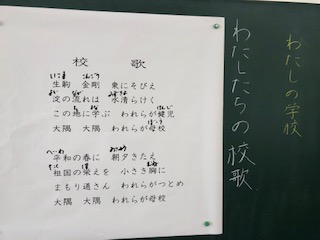 わたしの学校
わたしたちの校歌
校 歌
いこま こんごう
生駒 金剛 東にそびえ
淀の流れは 水清らけく
けんじ
この地に学ぶ われらが健児
ぼこう
大隅 大隅 われらが母校
へいわ あさゆう
平和の春に 朝夕きたえ
むね
祖国の栄えを 小さき胸に
まもり通さん われらがつとめ
大隅 大隅 われらが母校